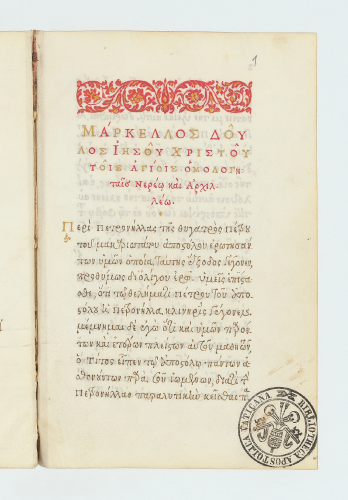 1
ΜΆΡΚΕΛΛΟΣ ΔΟΥ͂
ΛΟΣ ἸΗΣΟΥ͂ ΧΡΙΣΤΟΥ͂
ΤΟΙ͂Σ ἉΓΊΟΙΣ ὉΜΟΛΟΓΗ
ταῖσ Νερέῳ καὶ Ἀρχιλ
λέῳ.
Περὶ Πετρονίλλας τῆς θυγατρὸς Πέτρου
τοῦ μακαριωτάτου ἀποστόλου ἐρώτησαν
των ὑμῶν ὁποία ταύτης ἔξοδος γέγονεν
προθύμως διὸ λίγου ἐρῶ. ὑμεῖς
ὅτι τῷ θελήματι Πέτρου τοῦ ἀπο
στόλου Πετρονίλλα, κλινήρης γέγονεν,
μέμνημαι δὲ ἐγὼ ὅτι καὶ ὑμῶν
των καὶ ἑτέρων πλείστων αὐτοῦ μαθητῶν,
ὁ Τίτος εἶπεν τῷ ἀποστόλῳ πάντων
Πετρονίλλαν παραλυτικὴν κεῖσθαι
BIBLIOTHECA APOSTOLICA VATICANA